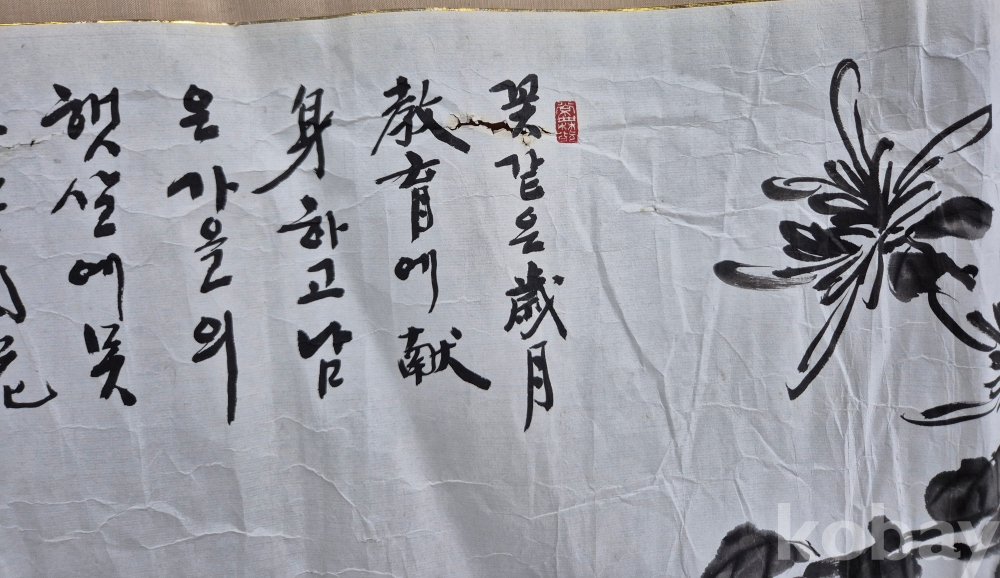 꽃같은歲月
教育에献
身하고남
은가을의
햇살에뭇
kobay